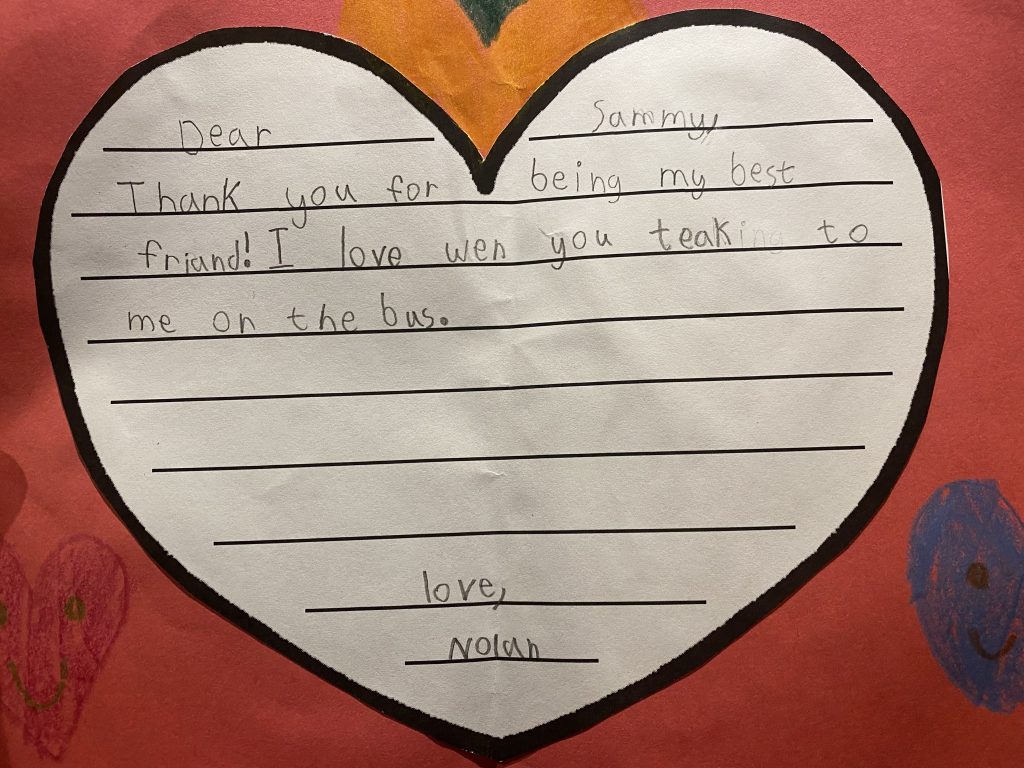 Dear Sammy,
Thank you for being my best
friand! I love wen you teak to
me on the bus.
love,
Nolan